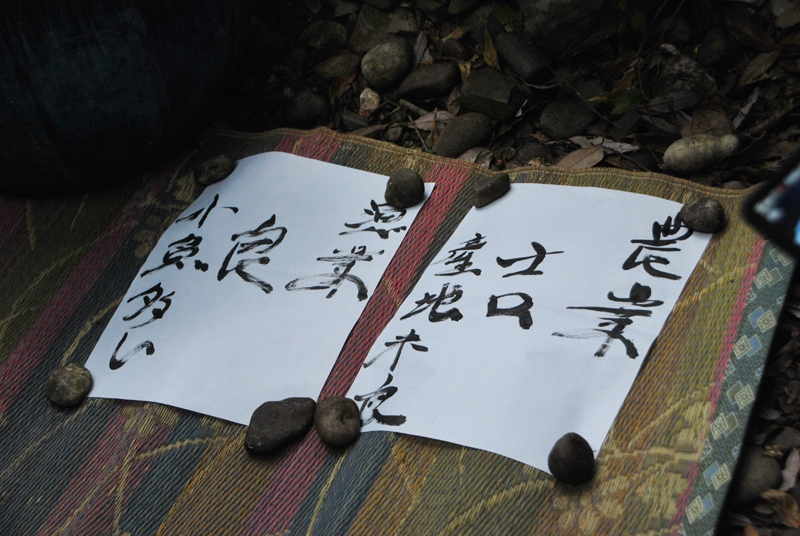 農業
吉
産地米良
漁業
良
小魚多い